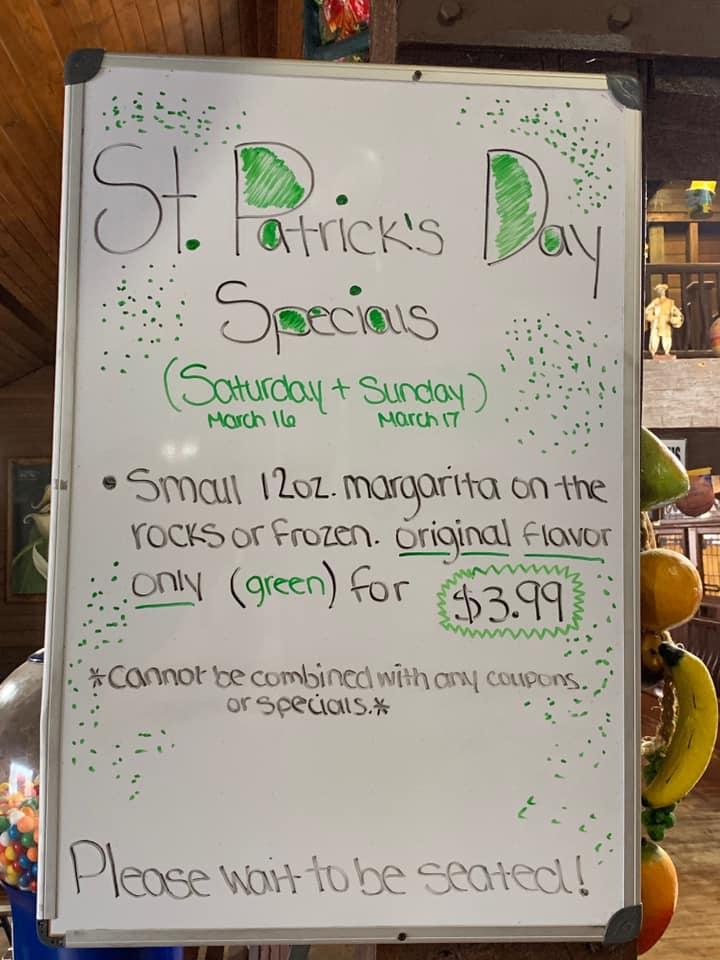 St. Patrick's Day
Specials
(Saturday + Sunday)
March 16 March 17
• Small 12oz. margarita on the
rocks or frozen. original flavor
only (green) for $3.99
*Cannot be combined with any coupons.
or specials.*
Please wait to be seated!